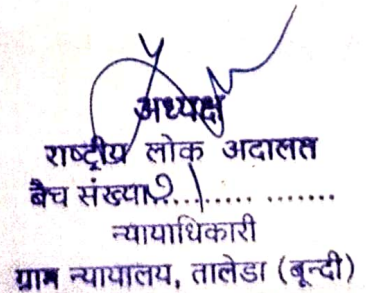 अध्यक्ष
राष्ट्रीय लोक अदालत
बैच संख्या............
न्यायाधिकारी
ग्राम न्यायालय, तालेडा (बून्दी)